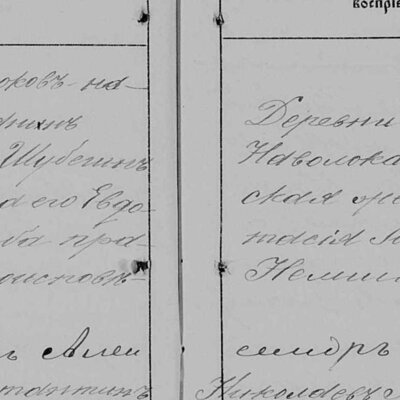 воспрі
оковъ на-
танинъ
Шубенинъ
а его Евдо-
ба пра-
оисповѣ-
ъ Алек
тантинъ
Деревни
Наволока
ская
тасія
Немши
сендръ
Николаевъ